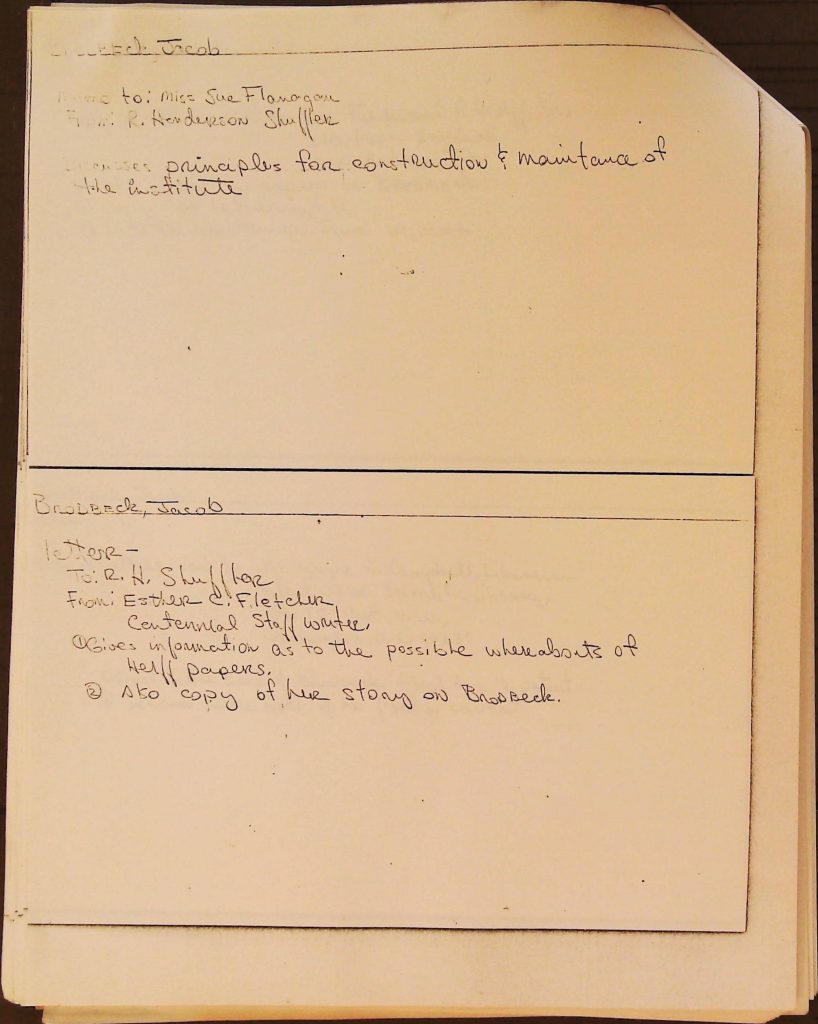 Brodbeck, Jacob
Memo to: Miss Sue Flanagan
From: R. Henderson Shuffler
Discusses principles for construction & maintance of
the institute
Brodbeck, Jacob
letter-
To: R. H. Shuffler
From: Esther C. Fletcher
Centennial Staff writer.
① Gives information as to the possible whereabouts of
Herff papers.
② Also copy of her story on Brodbeck.